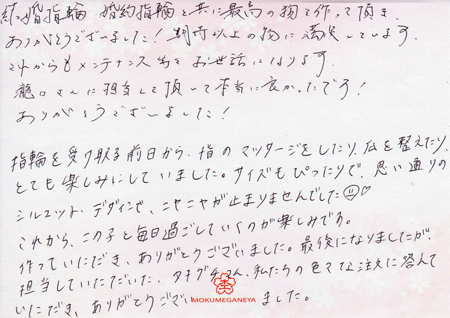 結婚指輪 婚約指輪と共に最高の物で作って頂き、
ありがとうございました！期待以上の物に満足しています。
これからもメンテナンス等でお世話になります。
瀧口さんに担当して頂いて本当に良かったです！
ありがとうございました！
指輪を受け取る前日から、指のマッサージをしたり、爪を整えたり、
とても楽しみにしていました。サイズもぴったりで、思い通りの
シルエット・デザインで、ニヤニヤが止まりませんでした
これから、この子と毎日過ごしていくのが楽しみです。
作っていただき、ありがとうございました。最後になりましたが、
担当していただいた、タキグチさん、私たちの色々な注文に答えて
いただき、ありがとうございました。
MOKUMEGANEYA